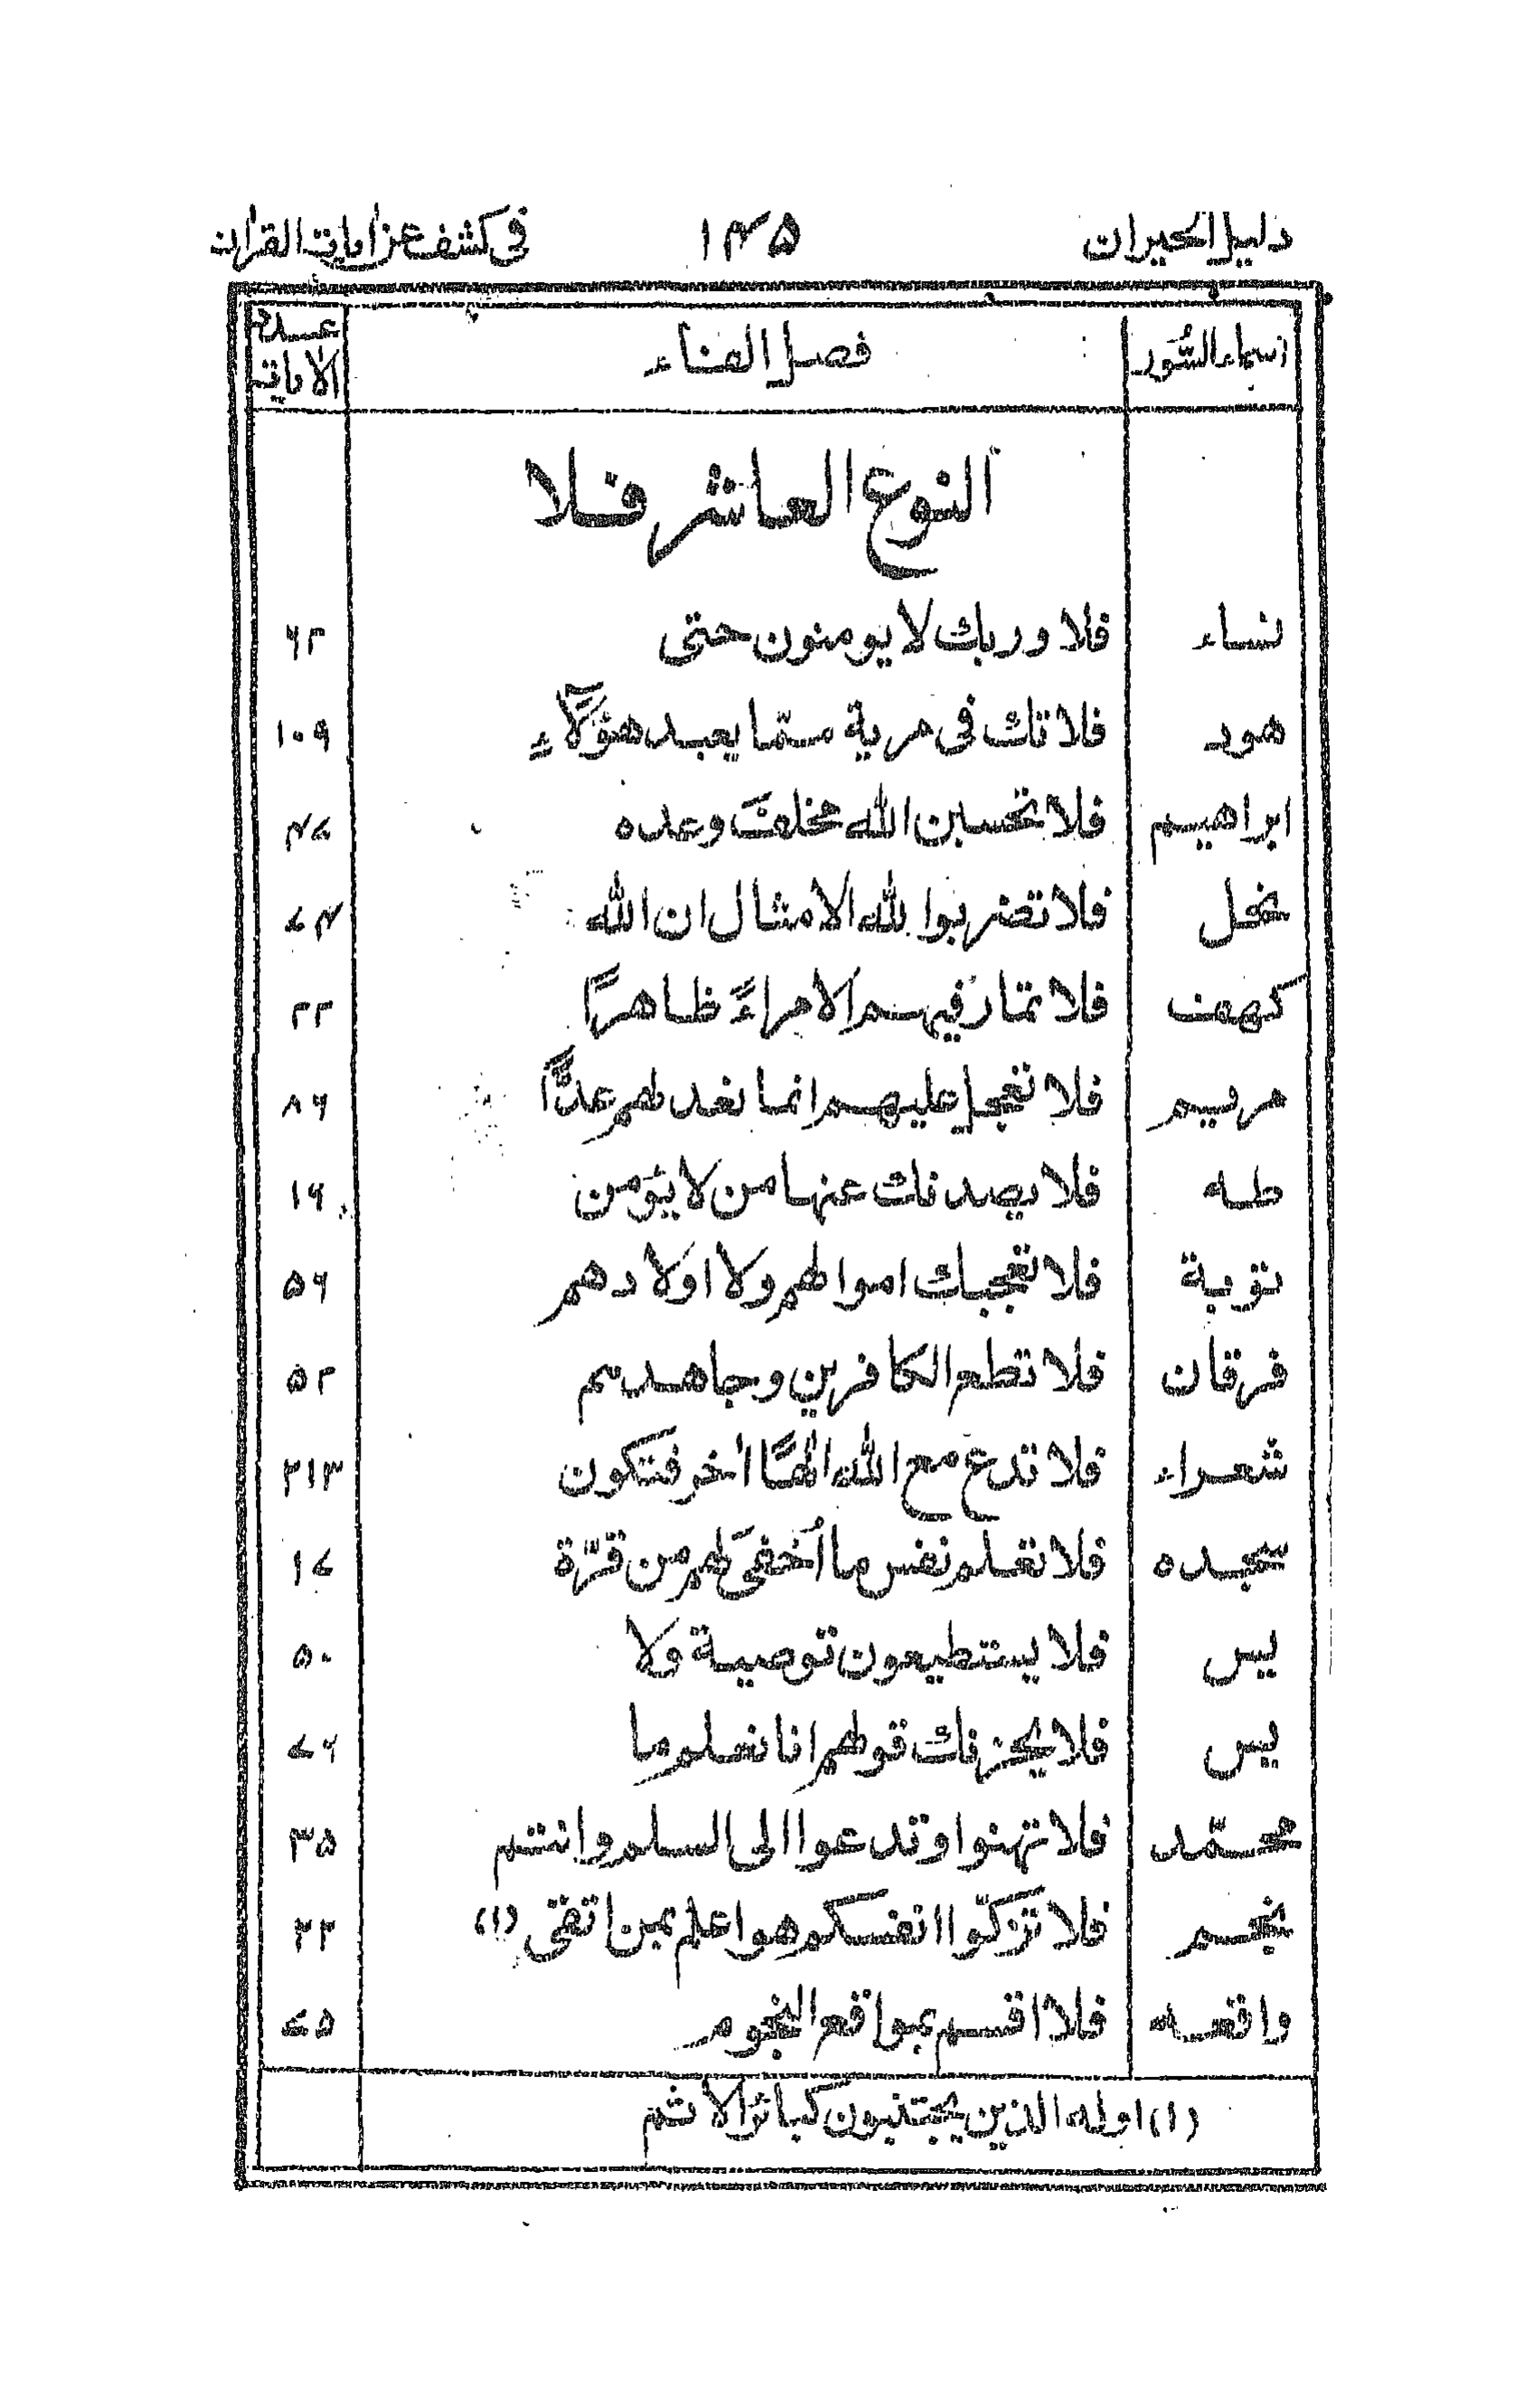 دليل الحيران ۱۴۵ فى كشف عن ايات القران
اسماء السُّور فصل الفاء عدد الايات
النوع العاشر فلا
نساء فلا وربك لا يومنون حتى ۶۲
هود فلا تك فى مرية ممّا يعبد هؤلآءِ ۱۰۹
ابراهيم فلا تحسبن الله مخلفَ وعده ۴۷
نحل فلا تضربوا لله الامثال ان الله ۷۴
كهف فلا تمار فيهم الا مراءً ظاهرًا ۲۲
مريم فلا تعجل عليهم انما نعد لهم عدًّا ۸۶
طه فلا يصدنك عنها من لا يؤمن ۱۶
توبة فلا تعجبك اموالهم ولا اولادهم ۵۶
فرقان فلا تطع الكافرين وجاهدهم ۵۲
شعراء فلا تدع مع الله الٰهًا اٰخر فتكون ۲۱۳
سجده فلا تعلم نفس ما أُخفىَ لهم من قرّة ۱۷
يٰس فلا يستطيعون توصية ولا ۵۰
يٰس فلا يحزنك قولهم انا نعلم ما ۷۶
محمّد فلا تهنوا وتدعوا الى السلم وانتم ۳۵
نجم فلا تزكّوا انفسكم هو اعلم بمن اتقى (۱) ۳۲
واقعه فلا اقسم بمواقع النجوم ۷۵
(۱) اوله الذين يجتنبون كبائر الاثم